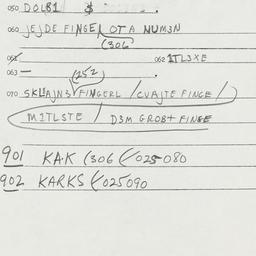 050 DOL81 $ .
060 JEJDE FINGE, OTA NUM3N
(306)
061 062 1TL3XE
063 — .
(252)
070 SKLHAJN3 FINGERL /CVAJTE FINGE/
M1TLSTE / D3M GROBT FINGE
901 KAK (306 (/025 080
902 KARKS (/025090